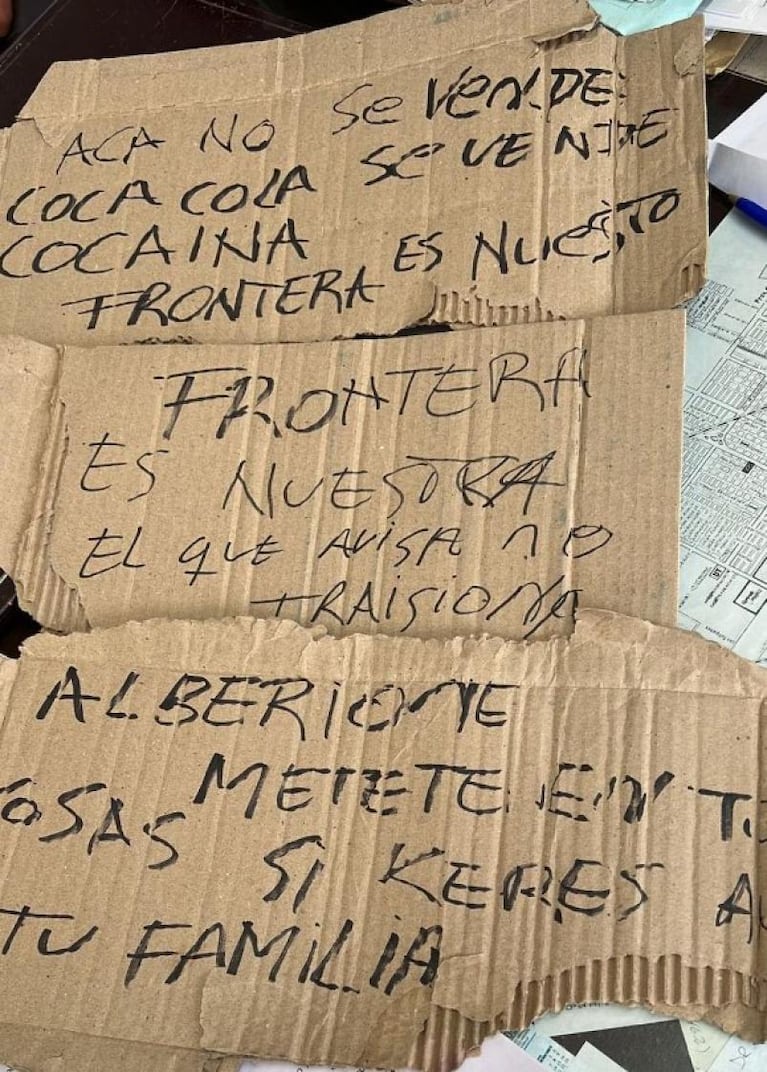 ACA NO Se VeNDE
COCA COLA Se VENDE
COCAINA ES NUesTO
FRONTERA
FRONTERA
ES NUESTRA
EL QUE AVISA NO
TRAISIONA
ALBERIONE
METETE EN
COSAS SI KERES
TU FAMILIA